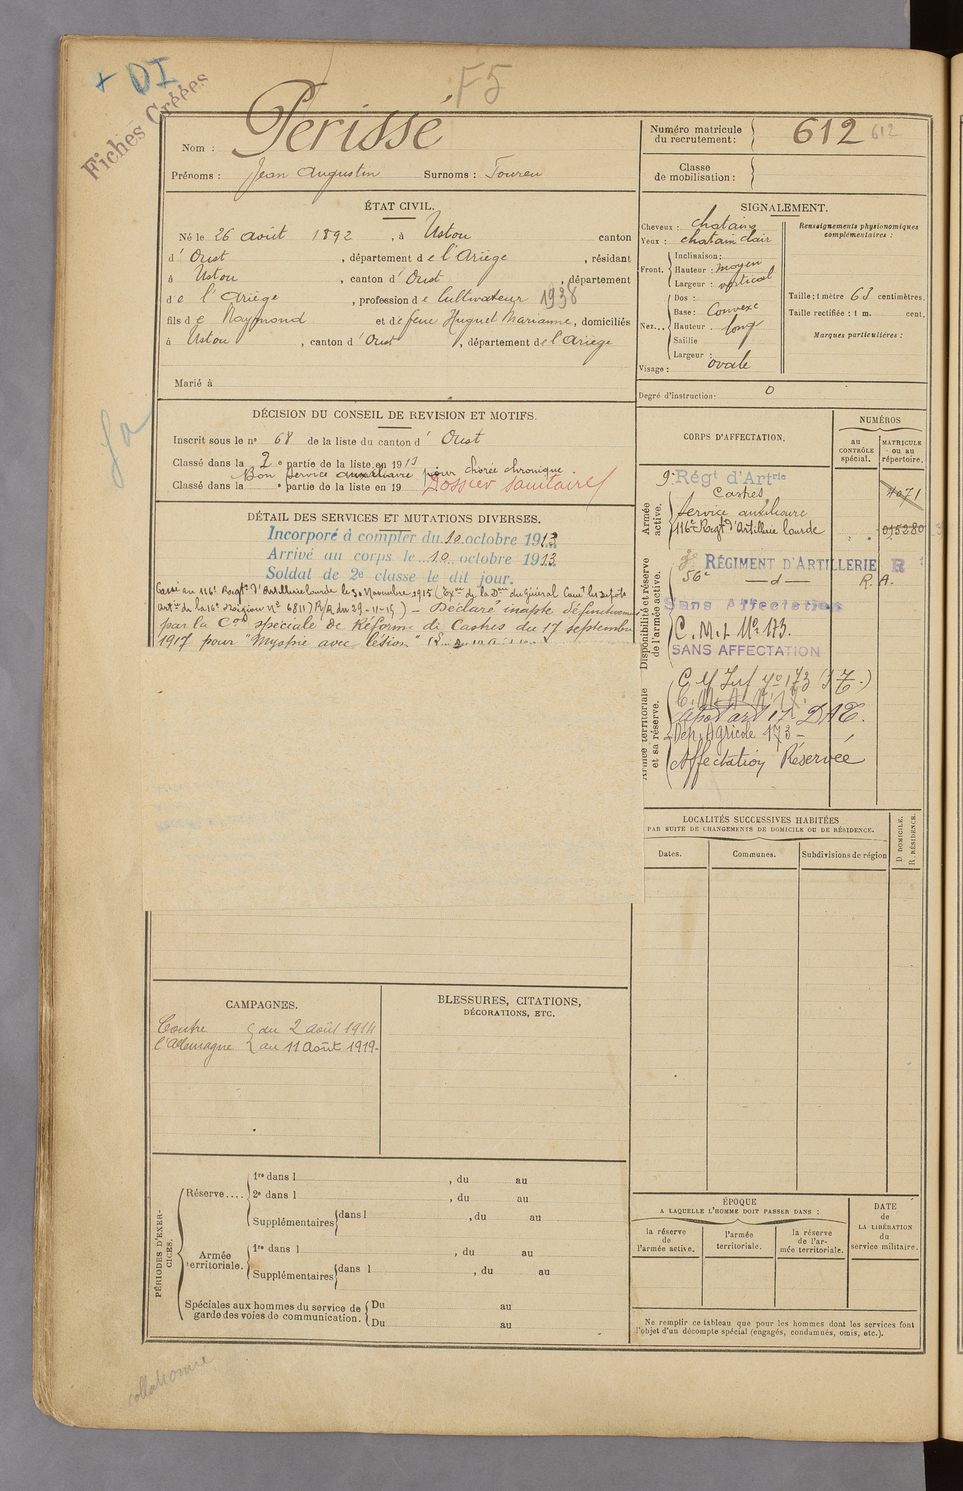 + DI
F5
Fiches Créées
Nom : Périssé
Prénoms : Jean Augustin Surnoms : Toureu
Numéro matricule du recrutement : 612 612
Classe de mobilisation :
ÉTAT CIVIL.
Né le 26 août 1892, à Ustou canton
d' Oust, département de l'Ariège, résidant
à Ustou, canton d'Oust, département
de l'Ariège, profession de Cultivateur 1938
fils de Raymond et de feue Huguet Marianne, domiciliés
à Ustou, canton d'Oust, département de l'Ariège
Marié à
SIGNALEMENT.
Cheveux : chatains
Yeux : chatain clair
Front. Inclinaison :
Hauteur : moyen
Largeur : vertical
Nez... Dos :
Base : Convexe
Hauteur long
Saillie
Largeur :
Visage : ovale
Renseignements physionomiques complémentaires :
Taille : 1 mètre 63 centimètres.
Taille rectifiée : 1 m. cent.
Marques particulières :
Degré d'instruction : 0
DÉCISION DU CONSEIL DE REVISION ET MOTIFS.
Inscrit sous le n° 68 de la liste du canton d' Oust
Classé dans la 2e partie de la liste en 1913
Bon service auxiliaire pour chorée chronique.
Classé dans la e partie de la liste en 19
Dossier sanitaire
DÉTAIL DES SERVICES ET MUTATIONS DIVERSES.
Incorporé à compter du 10 octobre 1913
Arrivé au corps le 10 octobre 1913
Soldat de 2e classe le dit jour.
Passé au 116e Regt d'Artillerie lourde le 30 Novembre 1915 (Exon de la Don du Général Comt les dépôts
Artie de la 16e Région No 6811) R/R du 29-11-15) - Déclaré inapte définitivement
par la Con spéciale de Réforme de Castres du 17 septembre
1917 pour "Myopie avec lésion"
CORPS D'AFFECTATION.
NUMÉROS
au CONTRÔLE spécial.
MATRICULE ou au répertoire.
Armée active.
9e Régt d'Artie
Castres 4071
service auxiliaire
116e Regt d'Artillerie lourde 015280
Disponibilité et réserve de l'armée active.
RÉGIMENT D'ARTILLERIE R
56e —d— R. A.
Sans Affectation
C.M.I No 173.
SANS AFFECTATION
Armée territoriale et sa réserve.
Dép. Agricole 173 -
Affectation Réservée
LOCALITÉS SUCCESSIVES HABITÉES
PAR SUITE DE CHANGEMENTS DE DOMICILE OU DE RÉSIDENCE.
Dates. Communes. Subdivisions de région
D. DOMICILE.
R. RÉSIDENCE.
CAMPAGNES.
Contre du 2 août 1914
l'Allemagne au 11 Août 1919.
BLESSURES, CITATIONS,
DÉCORATIONS, ETC.
PÉRIODES D'EXERCICES.
Réserve.... 1re dans l , du au
2e dans l , du au
Supplémentaires dans l , du au
Armée territoriale. 1re dans l , du au
Supplémentaires dans l , du au
Spéciales aux hommes du service de Du au
garde des voies de communication. Du au
ÉPOQUE
A LAQUELLE L'HOMME DOIT PASSER DANS :
la réserve de l'armée active.
l'armée territoriale.
la réserve de l'armée territoriale.
DATE de LA LIBÉRATION du service militaire.
Ne remplir ce tableau que pour les hommes dont les services font
l'objet d'un décompte spécial (engagés, condamnés, omis, etc.).
collationné